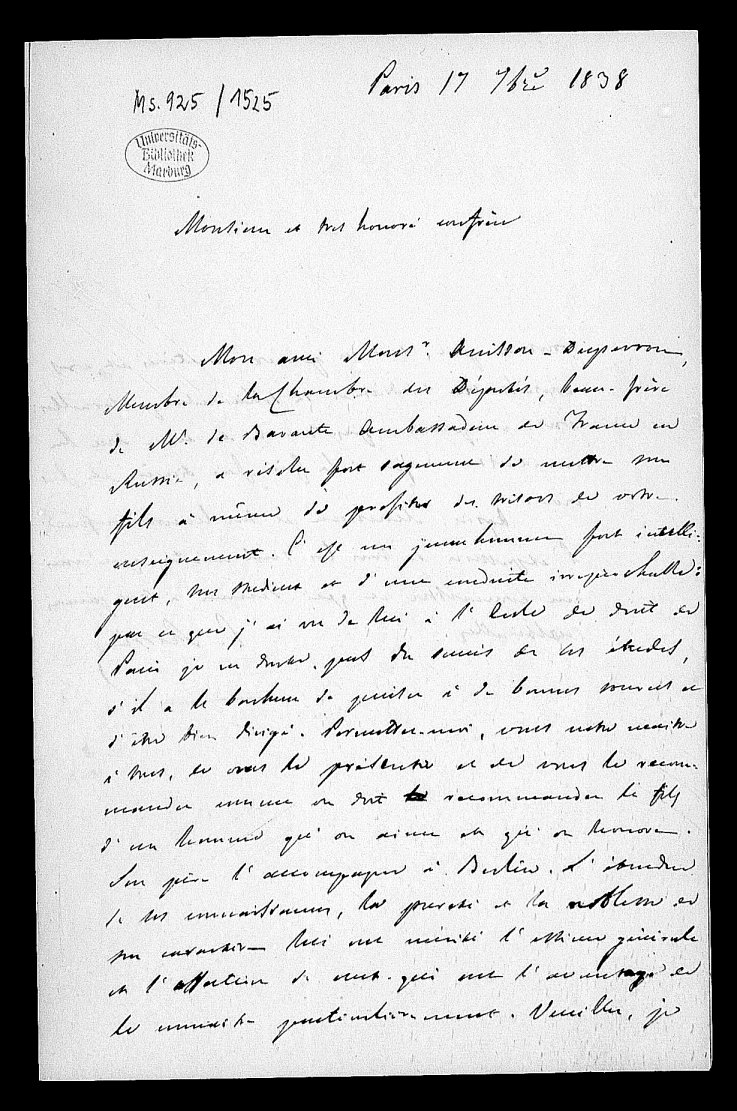 Paris 17 7bre 1838
Ms. 925 / 1525
Universitäts-
Bibliothek
Marburg
Monsieur et très honoré confrère
Mon ami Monsr. Anisson-Duperron,
Membre de la Chambre des Députés, beau-frère
de Mr. de Barante Ambassadeur de France en
Russie, a résolu fort sagement de mettre son
fils à même de profiter des trésors de votre
enseignement. C'est un jeune homme fort intelli-
gent, très studieux et d'une conduite irréprochable:
par ce que j'ai vu de lui à l'Ecole de droit de
Paris je ne doute pas du succès de ses études,
s'il a le bonheur de puiser à de bonnes sources et
d'être bien dirigé. Permettez-moi, vous notre maître
à tous, de vous le présenter et de vous le recom-
mander comme on doit recommander le fils
d'un homme qu'on aime et qu'on honore.
Son père l'accompagne à Berlin. L'étendue
de ses connaissances, la pureté et la noblesse de
son caractère lui ont mérité l'estime générale
et l'affection de ceux qui ont l'avantage de
le connaître particulièrement. Veuillez, je